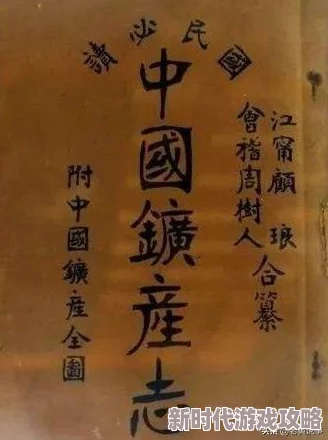 國民必讀
江甯顧琅
會稽周樹人
合纂
中國鑛產志
附中國鑛產全圖
新时代游戏攻略